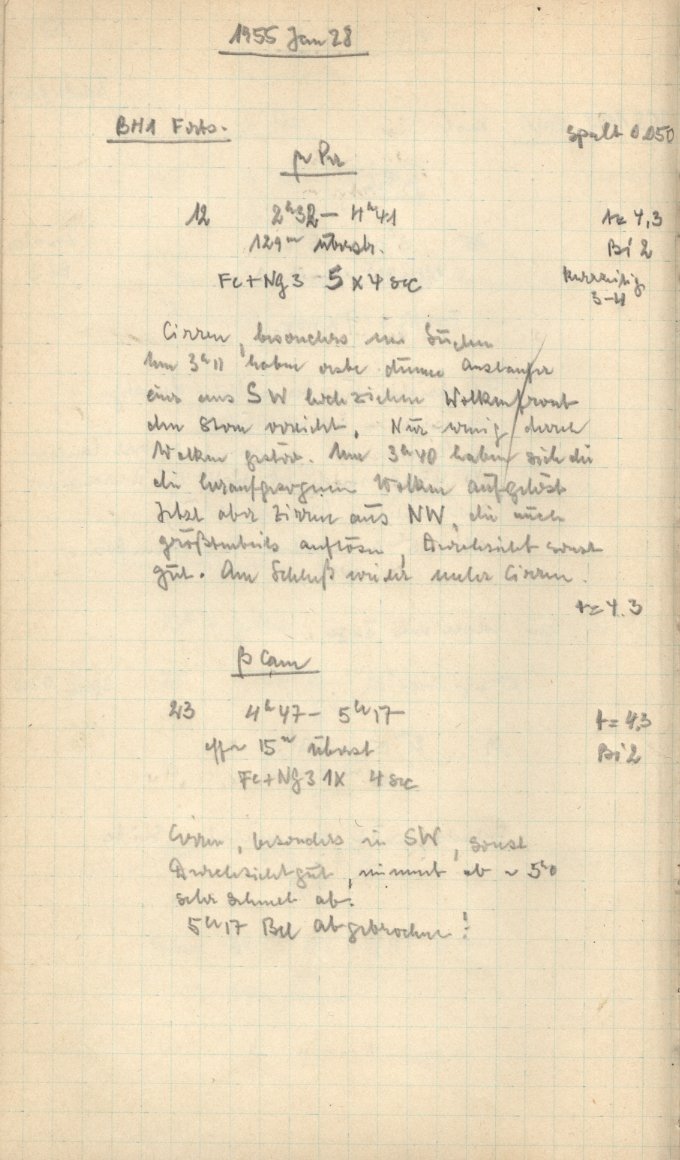 1955 Jan 28
BH1 Forts. Spalt 0.050
μ Per
12 2ʰ32 – 4ʰ41 t = 4,3
129ᵐ überstr. Bi 2
Fe+Ng3 5 x 4 sec kurzzeitig
3-4
Cirren, besonders im Süden
Um 3ʰ11 haben erste dünne Ausläufer
einer aus SW hochziehen Wolkenfront
den Stern erreicht. Nur wenig durch
Wolken gestört. Um 3ʰ40 haben sich die
die heraufgezogenen Wolken aufgelöst
Jetzt aber Zirren aus NW, die auch
größtenteils auflösen, Durchsicht sonst
gut. Am Schluß wieder mehr Cirren.
t = 4.3
β Cam
23 4ʰ47 – 5ʰ17 t = 4,3
eff ~ 15ᵐ überst Bi 2
Fe+Ng3 1x 4 sec
Cirren, besonders in SW, sonst
Durchsicht gut, nimmt ab ~ 5ʰ0
sehr schnell ab.
5ʰ17 Bel abgebrochen!